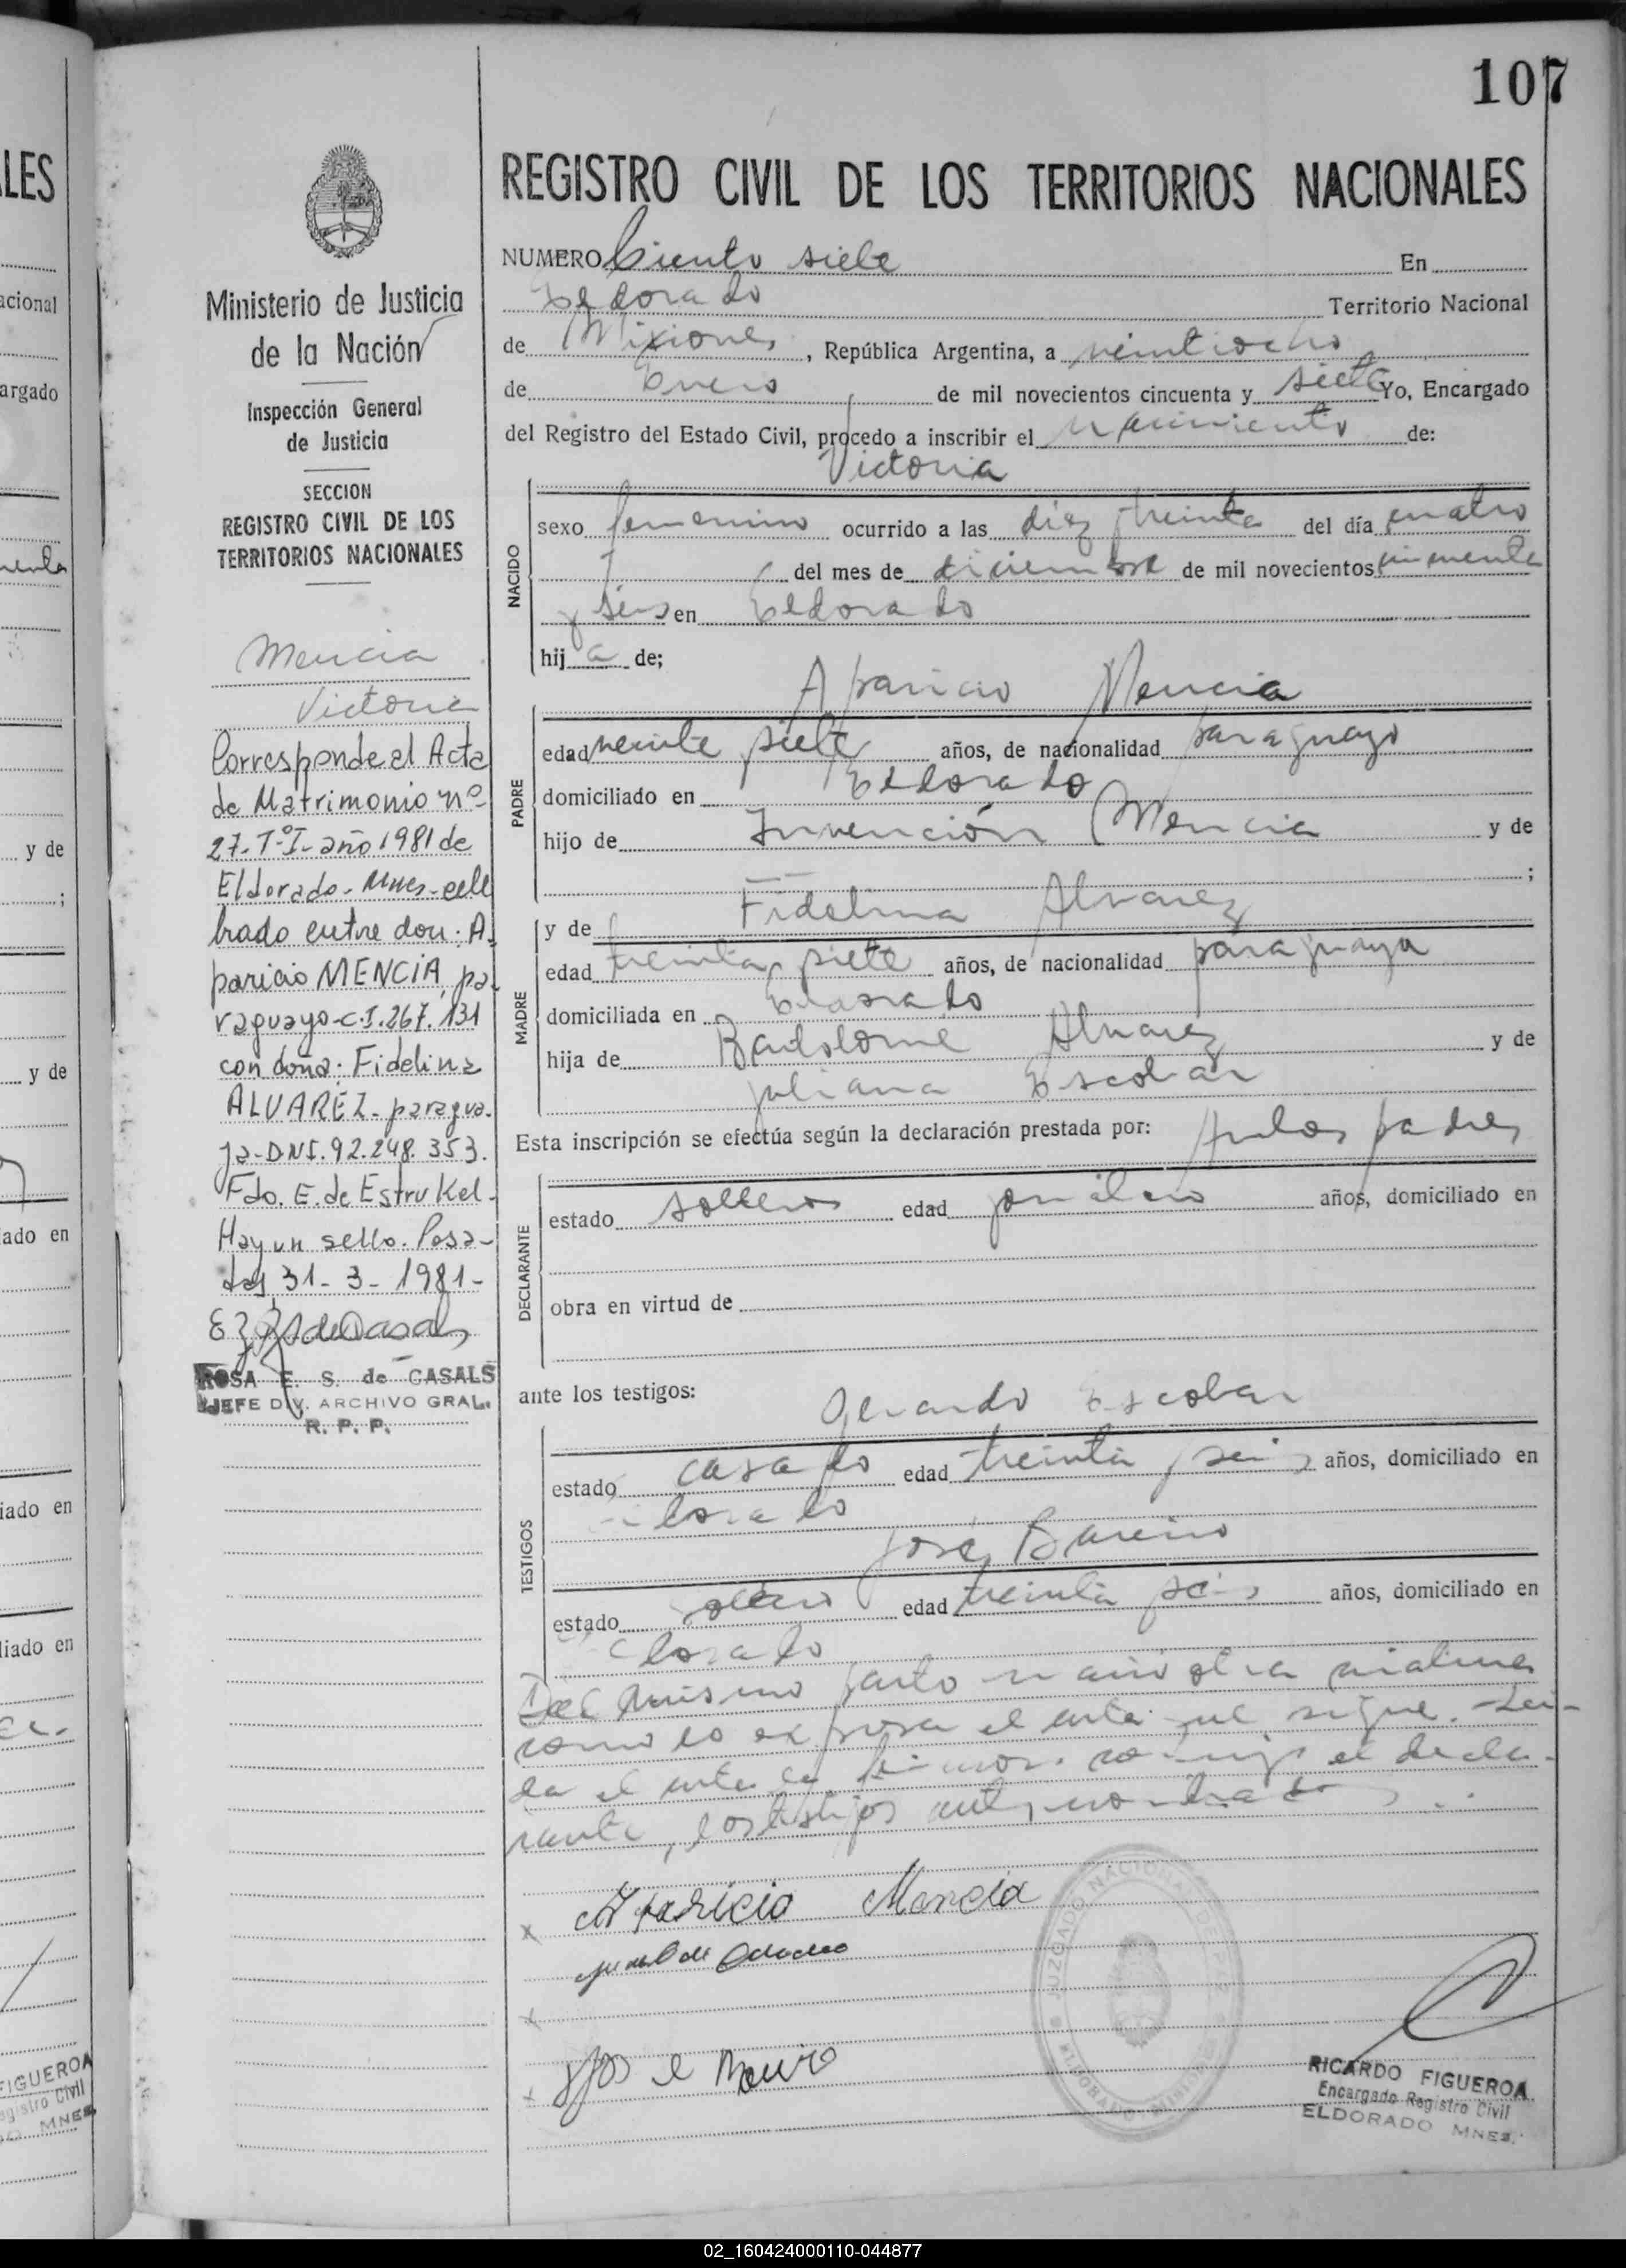 107
REGISTRO CIVIL DE LOS TERRITORIOS NACIONALES
NUMERO Ciento siete En
Eldorado Territorio Nacional
de Misiones, República Argentina, a veintiocho
de Enero de mil novecientos cincuenta y siete Yo, Encargado
del Registro del Estado Civil, procedo a inscribir el nacimiento de:
Victoria
NACIDO
sexo femenino ocurrido a las diez y treinta del día cuatro
del mes de diciembre de mil novecientos cincuenta
y seis en Eldorado
hij a de;
Aparicio Mencia
PADRE
edad veinte y siete años, de nacionalidad paraguayo
domiciliado en Eldorado
hijo de Invención Mencia y de
;
y de Fidelina Alvarez
MADRE
edad treinta y siete años, de nacionalidad paraguaya
domiciliada en Eldorado
hija de Bartolome Alvarez y de
Juliana Escobar
Esta inscripción se efectúa según la declaración prestada por: Ambos padres
DECLARANTE
estado solteros edad años, domiciliado en
obra en virtud de
ante los testigos: Gerardo Escobar
TESTIGOS
estado casado edad treinta y seis años, domiciliado en
Eldorado
José Bareiro
estado soltero edad treinta y seis años, domiciliado en
Eldorado
Del mismo parto nació otra
como lo expresa el acta que sigue. Lei-
da el acta la firmaron conmigo el decla-
rante, los testigos
Aparicio Mencia
RICARDO FIGUEROA
Encargado Registro Civil
ELDORADO MNES.
JUZGADO NACIONAL DE PAZ
ELDORADO MISIONES
Ministerio de Justicia
de la Nación
Inspección General
de Justicia
SECCION
REGISTRO CIVIL DE LOS
TERRITORIOS NACIONALES
Mencia
Victoria
Corresponde al Acta
de Matrimonio nº
27-Tº I-año 1981 de
Eldorado-Mnes-cele
brado entre don: A-
paricio MENCIA, pa-
raguayo-C.I.267.131
con doña: Fidelina
ALVAREZ-paragua-
ya-DNI.92.248.353.
Fdo. E. de Estrukel-
Hay un sello. Posa-
das 31-3-1981-
ROSA E. S. de CASALS
JEFE DIV. ARCHIVO GRAL.
R. P. P.
LES
acional
argado
y de
;
y de
iado en
iado en
liado en
FIGUEROA
Registro Civil
MNES.
02_160424000110-044877